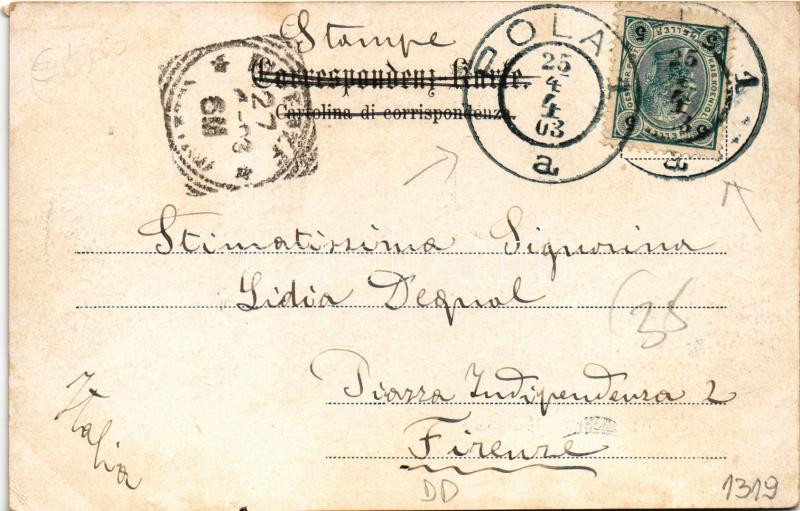 Stampe
Correspondenz-Karte.
Cartolina di corrispondenza.
POLA 1
25
4
4
03
a
5 HELLER 5
5 5
27
Stimatissima Signorina
Lidia Degnal
Piazza Indipendenza 2
Firenze
Italia
35
DD
1319